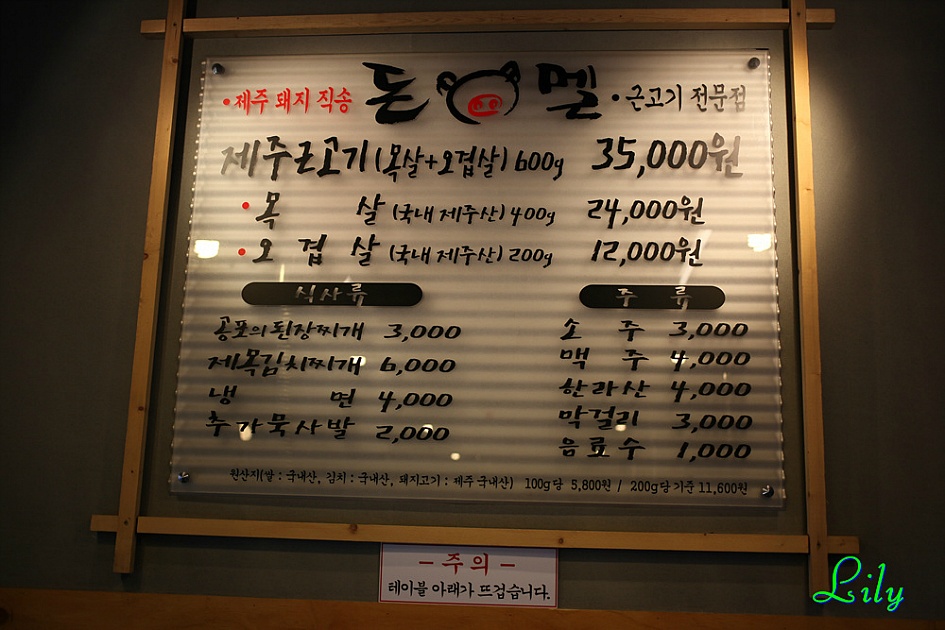 •제주 돼지 직송 돈 멜 •근고기 전문점
제주근고기(목살+오겹살) 600g 35,000원
•목 살 (국내 제주산) 400g 24,000원
•오 겹 살 (국내 제주산) 200g 12,000원
식사류
공포의된장찌개 3,000
제목김치찌개 6,000
냉 면 4,000
추가묵사발 2,000
주 류
소 주 3,000
맥 주 4,000
한라산 4,000
막걸리 3,000
음료수 1,000
원산지(쌀 : 국내산, 김치 : 국내산, 돼지고기 : 제주 국내산) 100g당 5,800원 / 200g당기준 11,600원
- 주 의 -
테이블 아래가 뜨겁습니다.
Lily